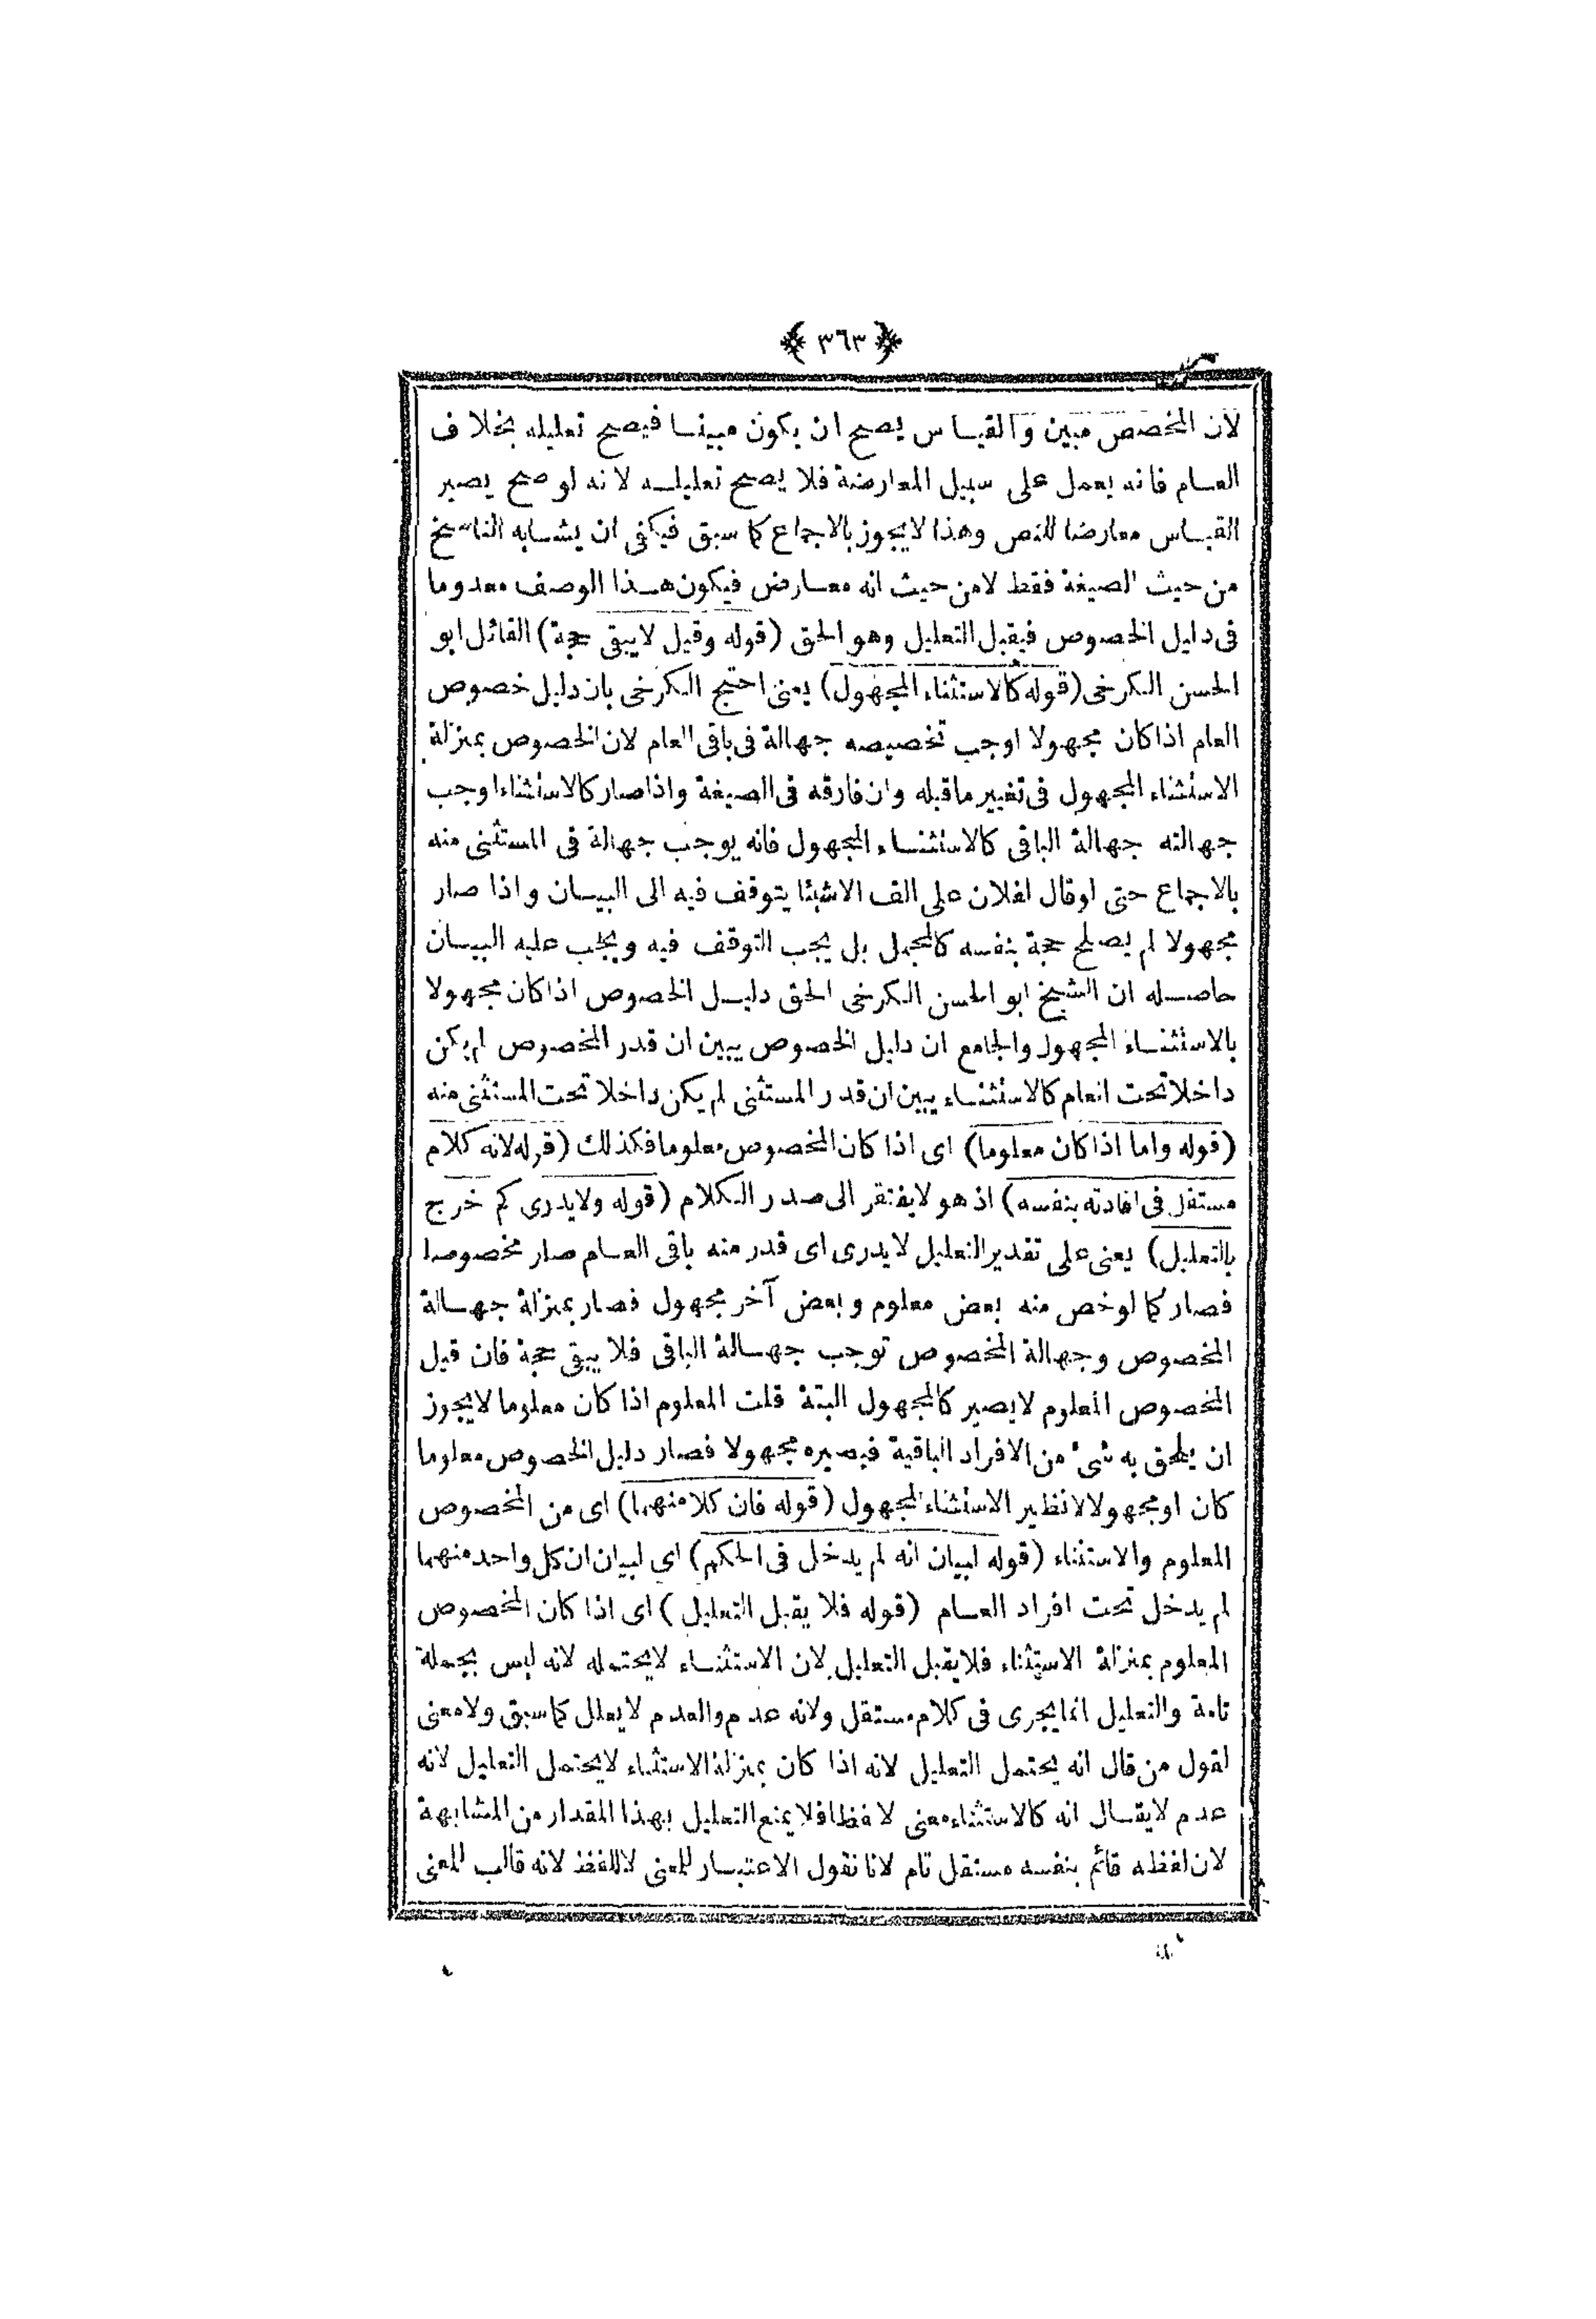 ﴿ ٣٦٣ ﴾
لان المخصص مبين والقياس يصح ان يكون مبينا فيصح تعليله بخلاف
العام فانه يعمل على سبيل المعارضة فلا يصح تعليله لانه لو صح يصير
القياس معارضا للنص وهذا لايجوز بالاجماع كما سبق فيكفى ان يشابه الناسخ
من حيث الصيغة فقط لامن حيث انه معارض فيكون هذا الوصف معدوما
فى دليل الخصوص فيقبل التعليل وهو الحق (قوله وقيل لايبقى حجة) القائل ابو
الحسن الكرخى (قوله كالاستثناء المجهول) يعنى احتج الكرخى بان دليل خصوص
العام اذا كان مجهولا اوجب تخصيصه جهالة فى باقى العام لان الخصوص بمنزلة
الاستثناء المجهول فى تغيير ماقبله وان فارقه فى الصيغة واذا صار كالاستثناء اوجب
جهالته جهالة الباقى كالاستثناء المجهول فانه يوجب جهالة فى المستثنى منه
بالاجماع حتى لوقال لفلان على الف الاشيئا يتوقف فيه الى البيان واذا صار
مجهولا لم يصلح حجة بنفسه كالمجمل بل يجب التوقف فيه ويجب عليه البيان
حاصله ان الشيخ ابو الحسن الكرخى الحق دليل الخصوص اذا كان مجهولا
بالاستثناء المجهول والجامع ان دليل الخصوص يبين ان قدر المخصوص لم يكن
داخلا تحت العام كالاستثناء يبين ان قدر المستثنى لم يكن داخلا تحت المستثنى منه
(قوله واما اذا كان معلوما) اى اذا كان المخصوص معلوما فكذلك (قوله لانه كلام
مستقل فى افادته بنفسه) اذ هو لايفتقر الى صدر الكلام (قوله ولايدرى كم خرج
بالتعليل) يعنى على تقدير التعليل لايدرى اى قدر منه باقى العام صار مخصوصا
فصار كما لو خص منه بعض معلوم وبعض آخر مجهول فصار بمنزلة جهالة
المخصوص وجهالة المخصوص توجب جهالة الباقى فلا يبقى حجة فان قيل
المخصوص المعلوم لايصير كالمجهول البتة قلت المعلوم اذا كان معلوما لايجوز
ان يلحق به شئ من الافراد الباقية فيصيره مجهولا فصار دليل الخصوص معلوما
كان اومجهولا نظير الاستثناء المجهول (قوله فان كلا منهما) اى من المخصوص
المعلوم والاستثناء (قوله لبيان انه لم يدخل فى الحكم) اى لبيان ان كل واحد منهما
لم يدخل تحت افراد العام (قوله فلا يقبل التعليل) اى اذا كان المخصوص
المعلوم بمنزلة الاستثناء فلايقبل التعليل لان الاستثناء لايحتمله لانه ليس بجملة
تامة والتعليل انما يجرى فى كلام مستقل ولانه عدم والعدم لايعلل كما سبق ولامعنى
لقول من قال انه يحتمل التعليل لانه اذا كان بمنزلة الاستثناء لايحتمل التعليل لانه
عدم لايقال انه كالاستثناء معنى لا لفظا فلا يمنع التعليل بهذا المقدار من المشابهة
لان لفظه قائم بنفسه مستقل تام لانا نقول الاعتبار للمعنى لا للفظ لانه قالب للمعنى